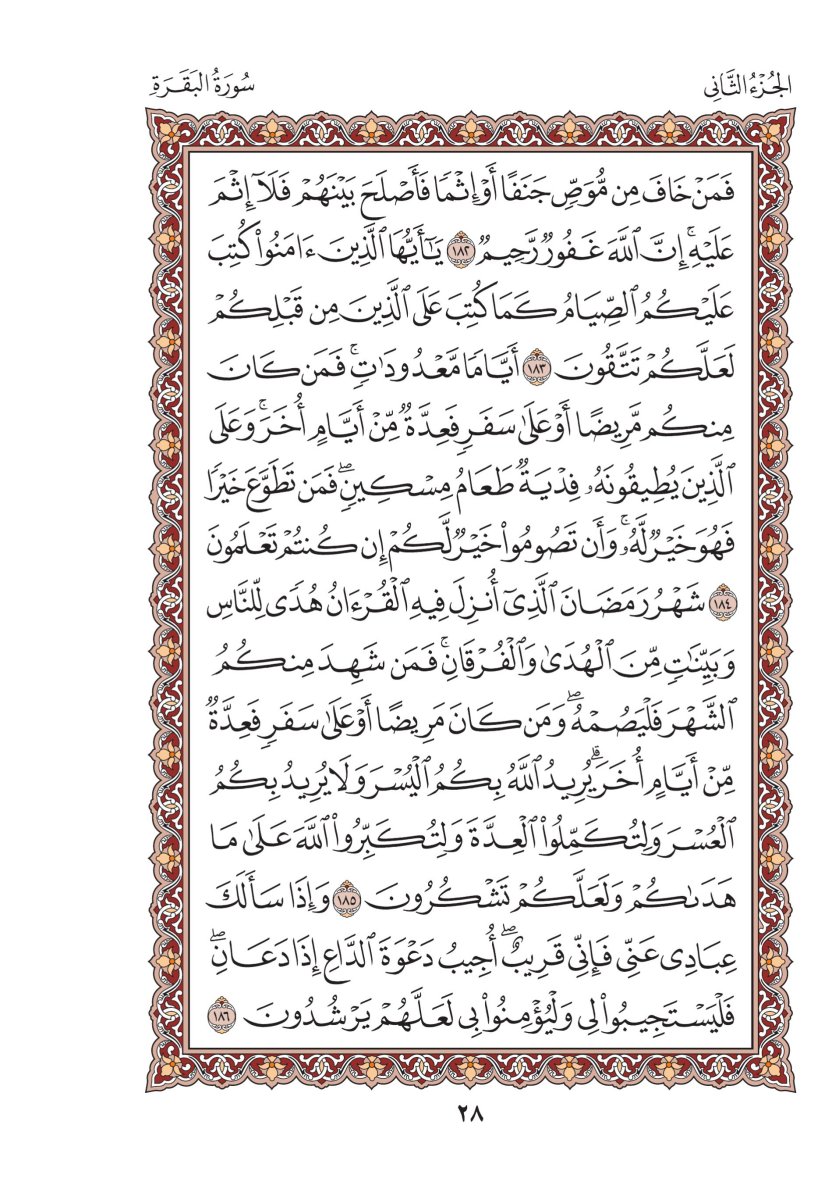 الجُزْءُ الثَّانِي
سُورَةُ البَقَرَةِ
فَمَنْ خَافَ مِن مُّوَصٍّ جَنَفًا أَوْ إِثْمًا فَأَصْلَحَ بَيْنَهُمْ فَلَآ إِثْمَ
عَلَيْهِۚ إِنَّ ٱللَّهَ غَفُورٌ رَّحِيمٌ ١٨٢ يَٰٓأَيُّهَا ٱلَّذِينَ ءَامَنُواْ كُتِبَ
عَلَيْكُمُ ٱلصِّيَامُ كَمَا كُتِبَ عَلَى ٱلَّذِينَ مِن قَبْلِكُمْ
لَعَلَّكُمْ تَتَّقُونَ ١٨٣ أَيَّامًا مَّعْدُودَٰتٍۚ فَمَن كَانَ
مِنكُم مَّرِيضًا أَوْ عَلَىٰ سَفَرٍ فَعِدَّةٌ مِّنْ أَيَّامٍ أُخَرَۚ وَعَلَى
ٱلَّذِينَ يُطِيقُونَهُۥ فِدْيَةٌ طَعَامُ مِسْكِينٍۖ فَمَن تَطَوَّعَ خَيْرًا
فَهُوَ خَيْرٌ لَّهُۥۚ وَأَن تَصُومُواْ خَيْرٌ لَّكُمْ إِن كُنتُمْ تَعْلَمُونَ
١٨٤ شَهْرُ رَمَضَانَ ٱلَّذِىٓ أُنزِلَ فِيهِ ٱلْقُرْءَانُ هُدًى لِّلنَّاسِ
وَبَيِّنَٰتٍ مِّنَ ٱلْهُدَىٰ وَٱلْفُرْقَانِۚ فَمَن شَهِدَ مِنكُمُ
ٱلشَّهْرَ فَلْيَصُمْهُۖ وَمَن كَانَ مَرِيضًا أَوْ عَلَىٰ سَفَرٍ فَعِدَّةٌ
مِّنْ أَيَّامٍ أُخَرَۗ يُرِيدُ ٱللَّهُ بِكُمُ ٱلْيُسْرَ وَلَا يُرِيدُ بِكُمُ
ٱلْعُسْرَ وَلِتُكَمِّلُواْ ٱلْعِدَّةَ وَلِتُكَبِّرُواْ ٱللَّهَ عَلَىٰ مَا
هَدَىٰكُمْ وَلَعَلَّكُمْ تَشْكُرُونَ ١٨٥ وَإِذَا سَأَلَكَ
عِبَادِى عَنِّى فَإِنِّى قَرِيبٌۖ أُجِيبُ دَعْوَةَ ٱلدَّاعِ إِذَا دَعَانِۖ
فَلْيَسْتَجِيبُواْ لِى وَلْيُؤْمِنُواْ بِى لَعَلَّهُمْ يَرْشُدُونَ ١٨٦
٢٨